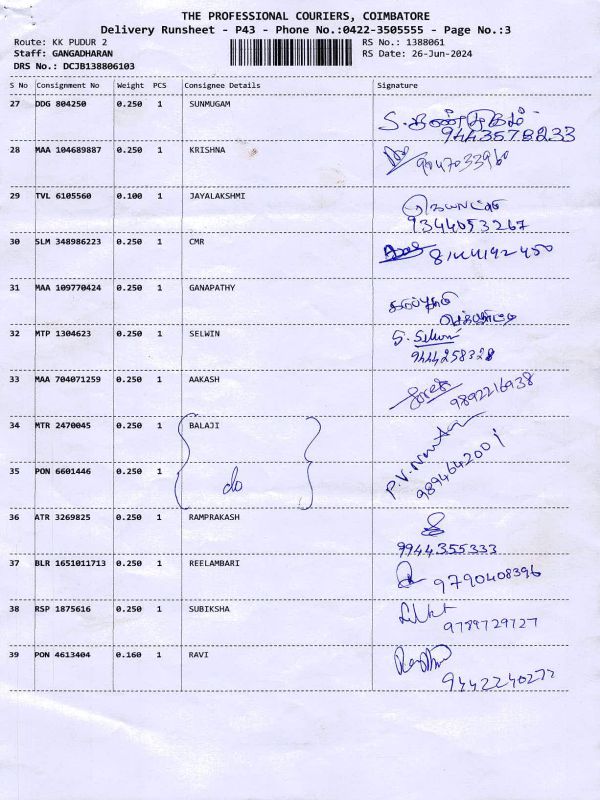 THE PROFESSIONAL COURIERS, COIMBATORE
Delivery Runsheet - P43 - Phone No.:0422-3505555 - Page No.:3
Route: KK PUDUR 2 RS No.: 1388061
Staff: GANGADHARAN RS Date: 26-Jun-2024
DRS No.: DCJB138806103
S No Consignment No Weight PCS Consignee Details Signature
27 DDG 804250 0.250 1 SUNMUGAM
S. சண்முகம்
9443578233
28 MAA 104689887 0.250 1 KRISHNA
9047033960
29 TVL 6105560 0.100 1 JAYALAKSHMI
9344053267
30 SLM 348986223 0.250 1 CMR
31 MAA 109770424 0.250 1 GANAPATHY
32 MTP 1304623 0.250 1 SELWIN
S. Selwin
9444258328
33 MAA 704071259 0.250 1 AAKASH
9892216938
34 MTR 2470045 0.250 1 BALAJI
35 PON 6601446 0.250 1 do
9894642001
36 ATR 3269825 0.250 1 RAMPRAKASH
9944355333
37 BLR 1651011713 0.250 1 REELAMBARI
9790408396
38 RSP 1875616 0.250 1 SUBIKSHA
9789729727
39 PON 4613404 0.160 1 RAVI
9442240277